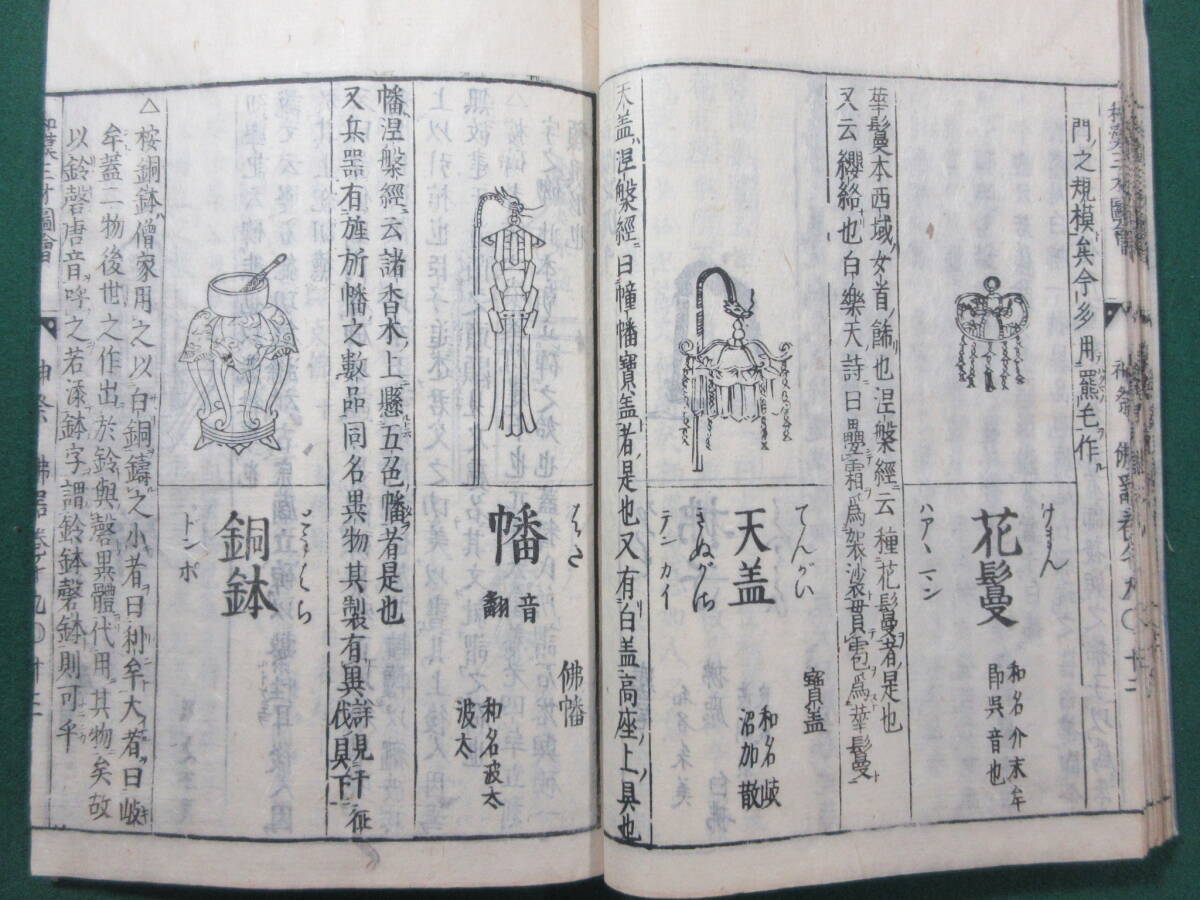 門ノ之規模矣今ハ多用テ羆毛ヲ作ル
けまん
花鬘
ハアヽマン
和名介末牟
即呉音也
華鬘本西域ノ女ノ首ノ飾也涅槃經ニ云種ニ花鬘ヲ者ハ是也
又云纓絡也白樂天詩ニ曰疊霜爲袈裟ト貫雹爲華鬘ト
てんがい
天盖
きぬがさ
テンカイ
寳盖
和名岐
沼加散
天盖ハ涅槃經ニ曰幢幡寳盖者ハ是也又有白盖高座ノ上ノ具也
はた
幡
音
翻
佛幡
和名波太
波太
幡涅槃經ニ云諸香木ノ上ニ懸五色ノ幡ヲ者是也
又兵器ニ有旌旂幡之數品同名異物其製有異詳見于征
伐具ノ下ニ
銅鉢
トンポ
△桉銅鉢ハ僧家用之以白銅鑄之小者ヲ曰利牟ト大者ヲ曰岐
牟蓋二物後世ノ之作出於鈴與磬異體代用其物矣故
以鈴磬唐音呼之若添鉢字謂鈴鉢磬鉢則可乎